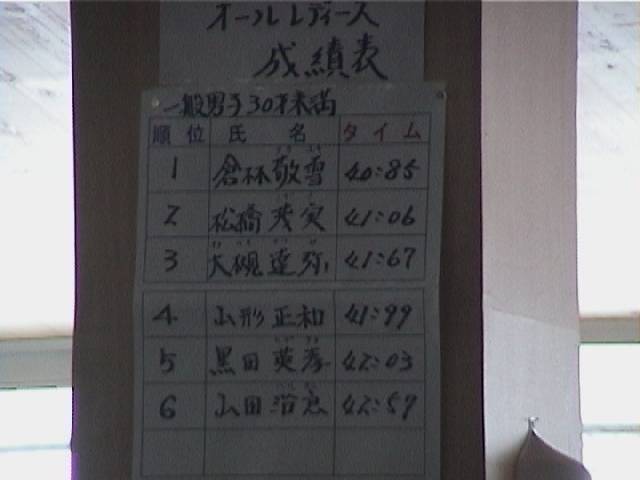 オールレディース
成績表
一般男子30才未満
順位 氏名 タイム
1 倉林敬雪 40:85
2 松橋茂実 41:06
3 大槻達弥 41:67
4 山形正和 41:99
5 黒田英彦 42:03
6 山田 42:59